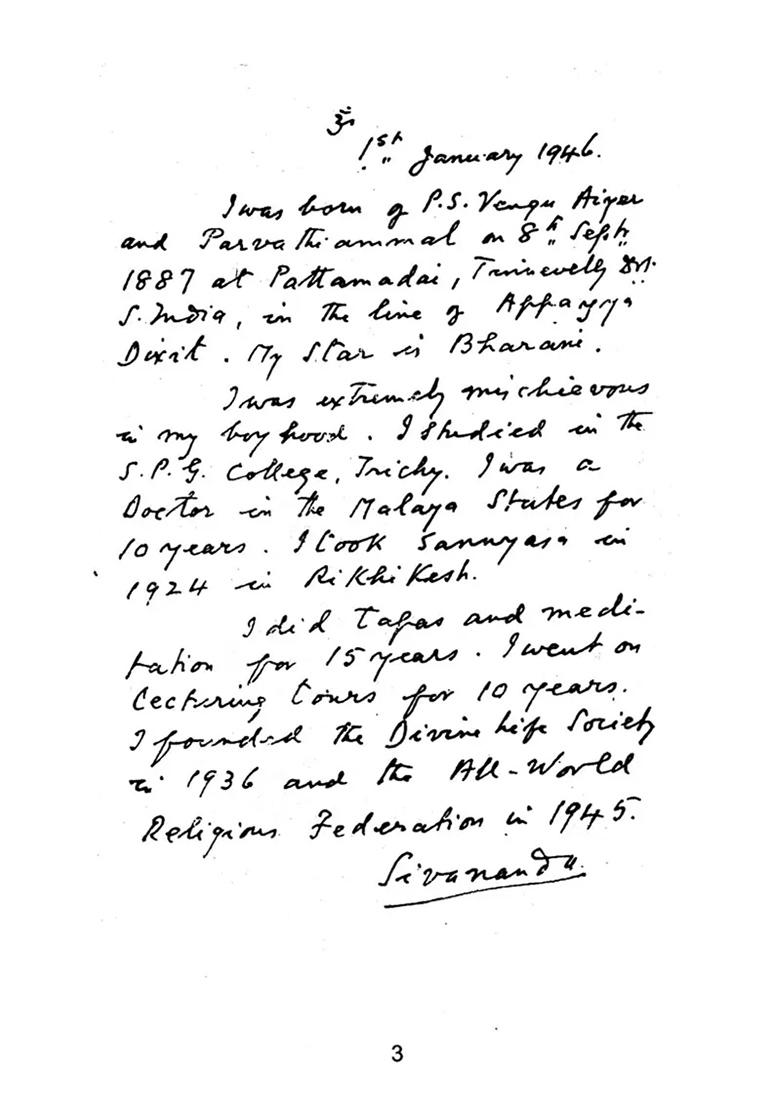 ॐ
1st January 1946.
I was born of P.S. Vengu Aiyer
and Parvathiammal on 8th Sept.
1887 at Pattamadai, Tinnevelly Dst.
S. India, in the line of Appayya
Dixit. My Star is Bharani.
I was extremely mischievous
in my boyhood. I studied in the
S.P.G. College, Trichy. I was a
Doctor in the Malaya States for
10 years. I took Sannyasa in
1924 in Rikhikesh.
I did Tapas and medi-
tation for 15 years. I went on
lecturing tours for 10 years.
I founded the Divine Life Society
in 1936 and the All-World
Religions Federation in 1945.
Sivananda.
3